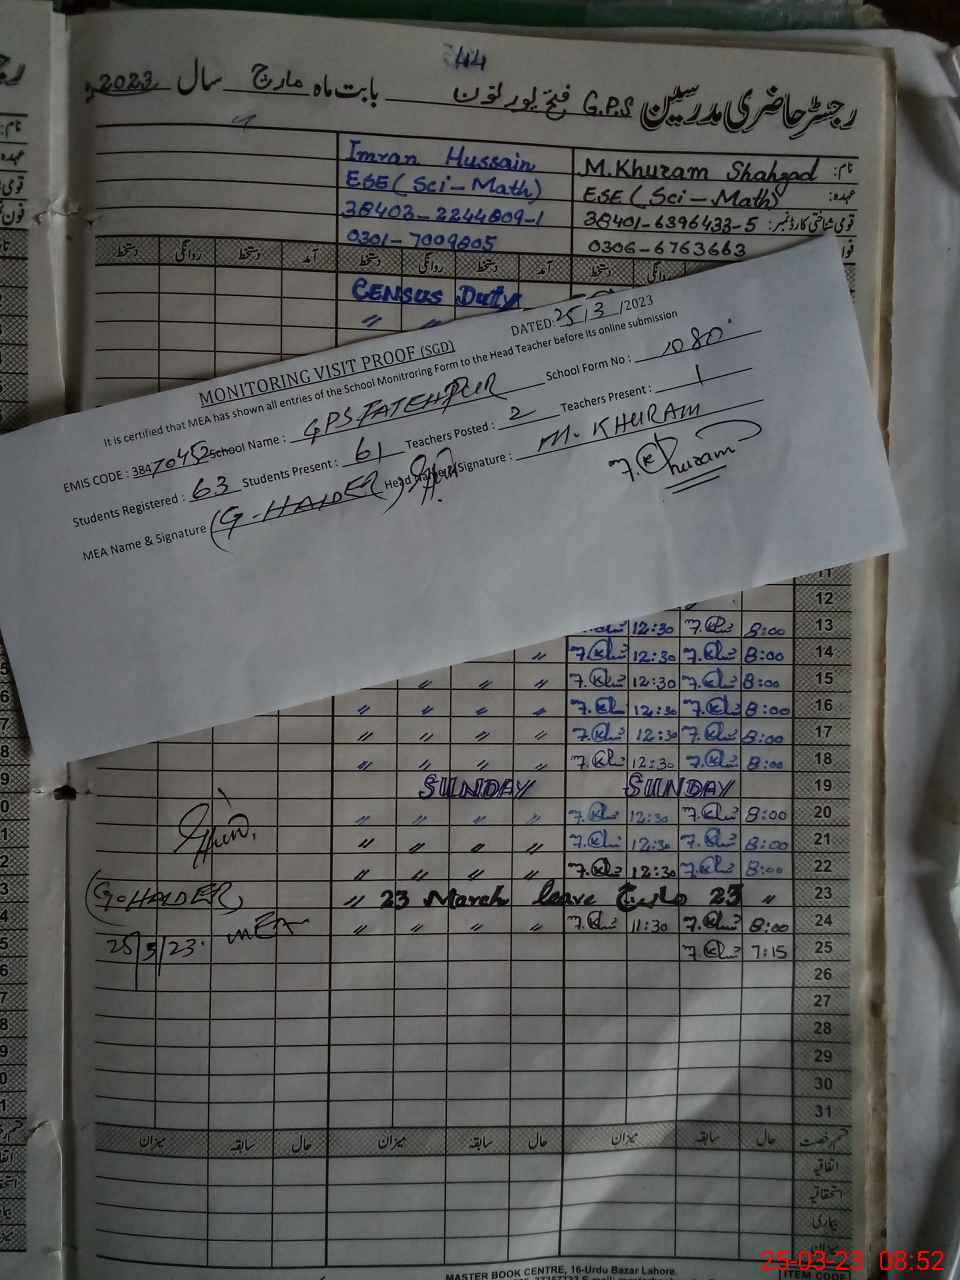 44
رجسٹر حاضری مدرسین G.P.S فتح پور لون بابت ماہ مارچ سال 2023ء
نام: M.Khuram Shahzad Imran Hussain
عہدہ: ESE (Sci-Math) ESE (Sci-Math)
قومی شناختی کارڈ نمبر: 38401-6396433-5 38403-2244809-1
0306-6763663 0301-7009805
دستخط روانگی آمد دستخط روانگی دستخط آمد دستخط روانگی دستخط
CENSUS Duty
〃 〃
DATED: 25/3/2023
MONITORING VISIT PROOF (SGD)
It is certified that MEA has shown all entries of the School Monitroring Form to the Head Teacher before its online submission
EMIS CODE : 38470452 School Name : GPS FATEHPUR School Form No : 1080
Students Registered : 63 Students Present : 61 Teachers Posted : 2 Teachers Present : 1
MEA Name & Signature (G-HAIDER) Signature : M. KHURAM
11
12
13 8:00 12:30
14 8:00 12:30 〃
15 8:00 12:30 〃 〃 〃
16 8:00 12:30 〃 〃 〃 〃
17 8:00 12:30 〃 〃 〃 〃
18 8:00 12:30 〃 〃 〃 〃
19 SUNDAY SUNDAY
20 8:00 12:30 〃 〃 〃 〃
21 8:00 12:30 〃 〃 〃 〃
22 8:00 12:30 〃 〃 〃 〃
(G-HAIDER) 〃 23 March leave 23 مارچ 〃 23
MEA 24 8:00 11:30 〃 〃 〃 〃
25/3/23 25 7:15
26
27
28
29
30
31
قسم رخصت حال سابقہ میزان حال سابقہ میزان حال سابقہ میزان
اتفاقیہ
استحقاقیہ
بیماری
میزان
MASTER BOOK CENTRE, 16-Urdu Bazar Lahore.
ITEM CODE
25-03-23 08:52